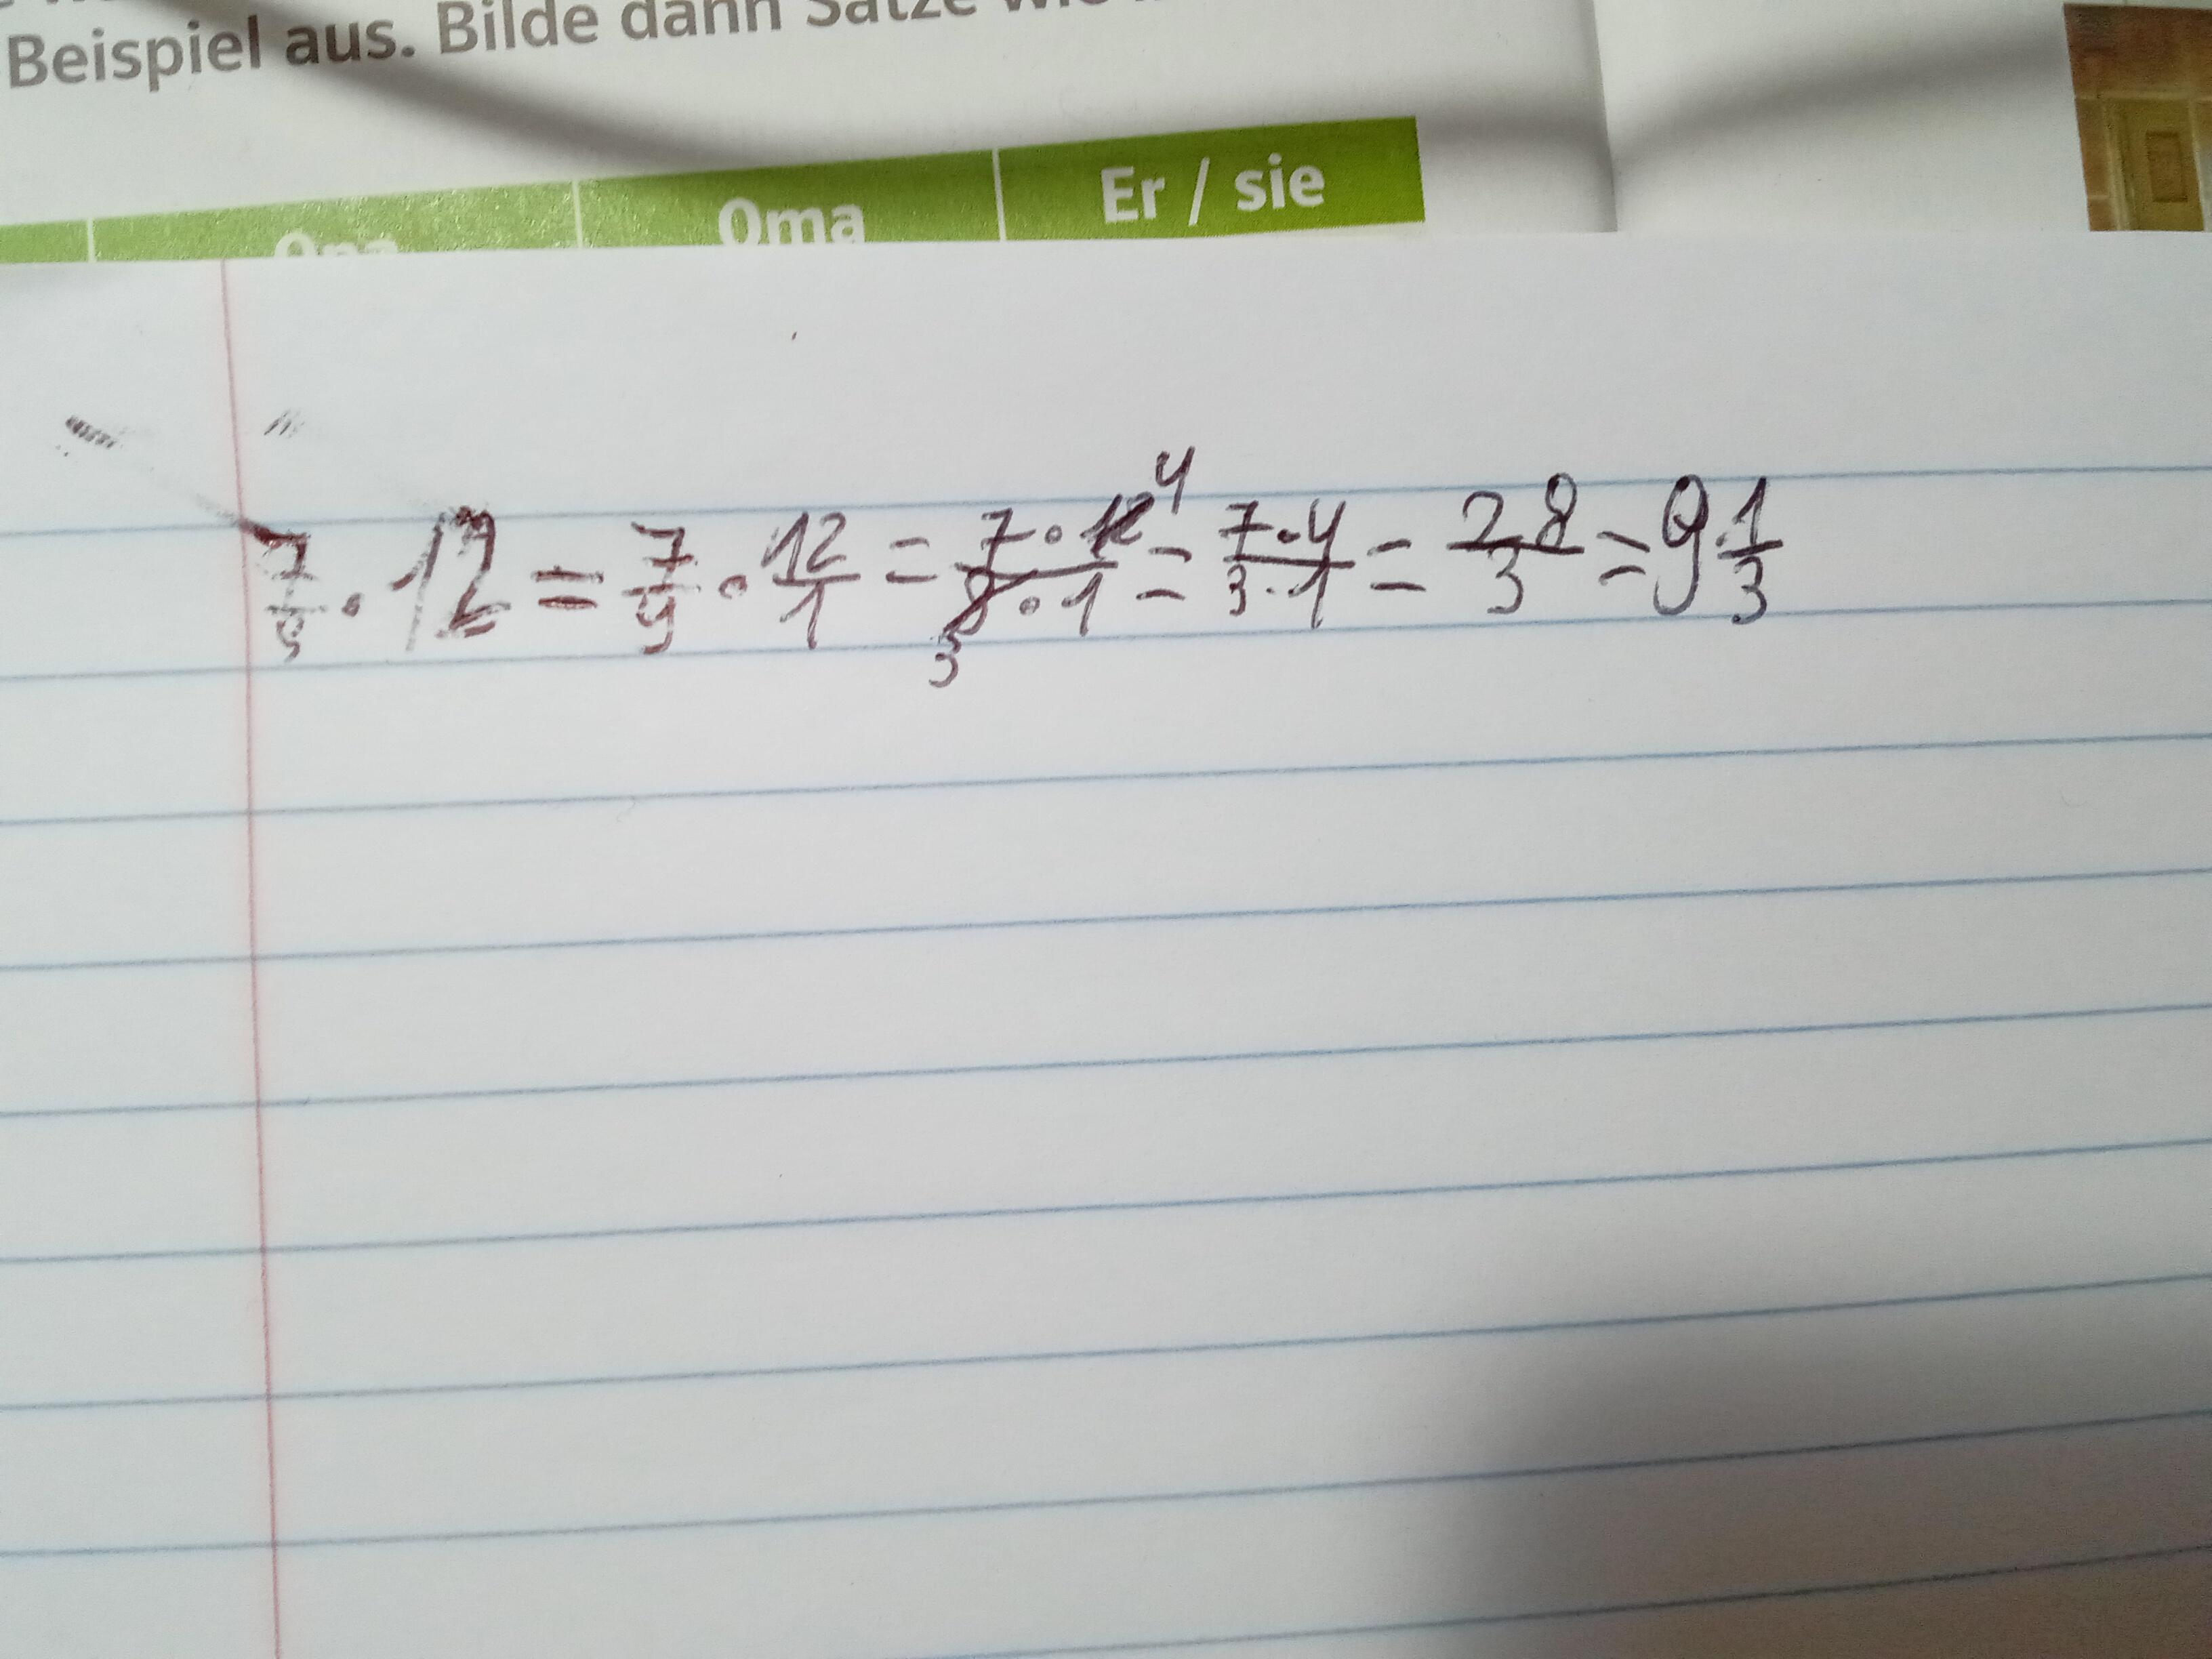 Beispiel aus. Bilde dann Sätze wie
Opa Oma Er / sie
7/9 · 12 = 7/9 · 12/1 = 7·12 4/9·1 3 = 7·4/3·1 = 28/3 = 9 1/3